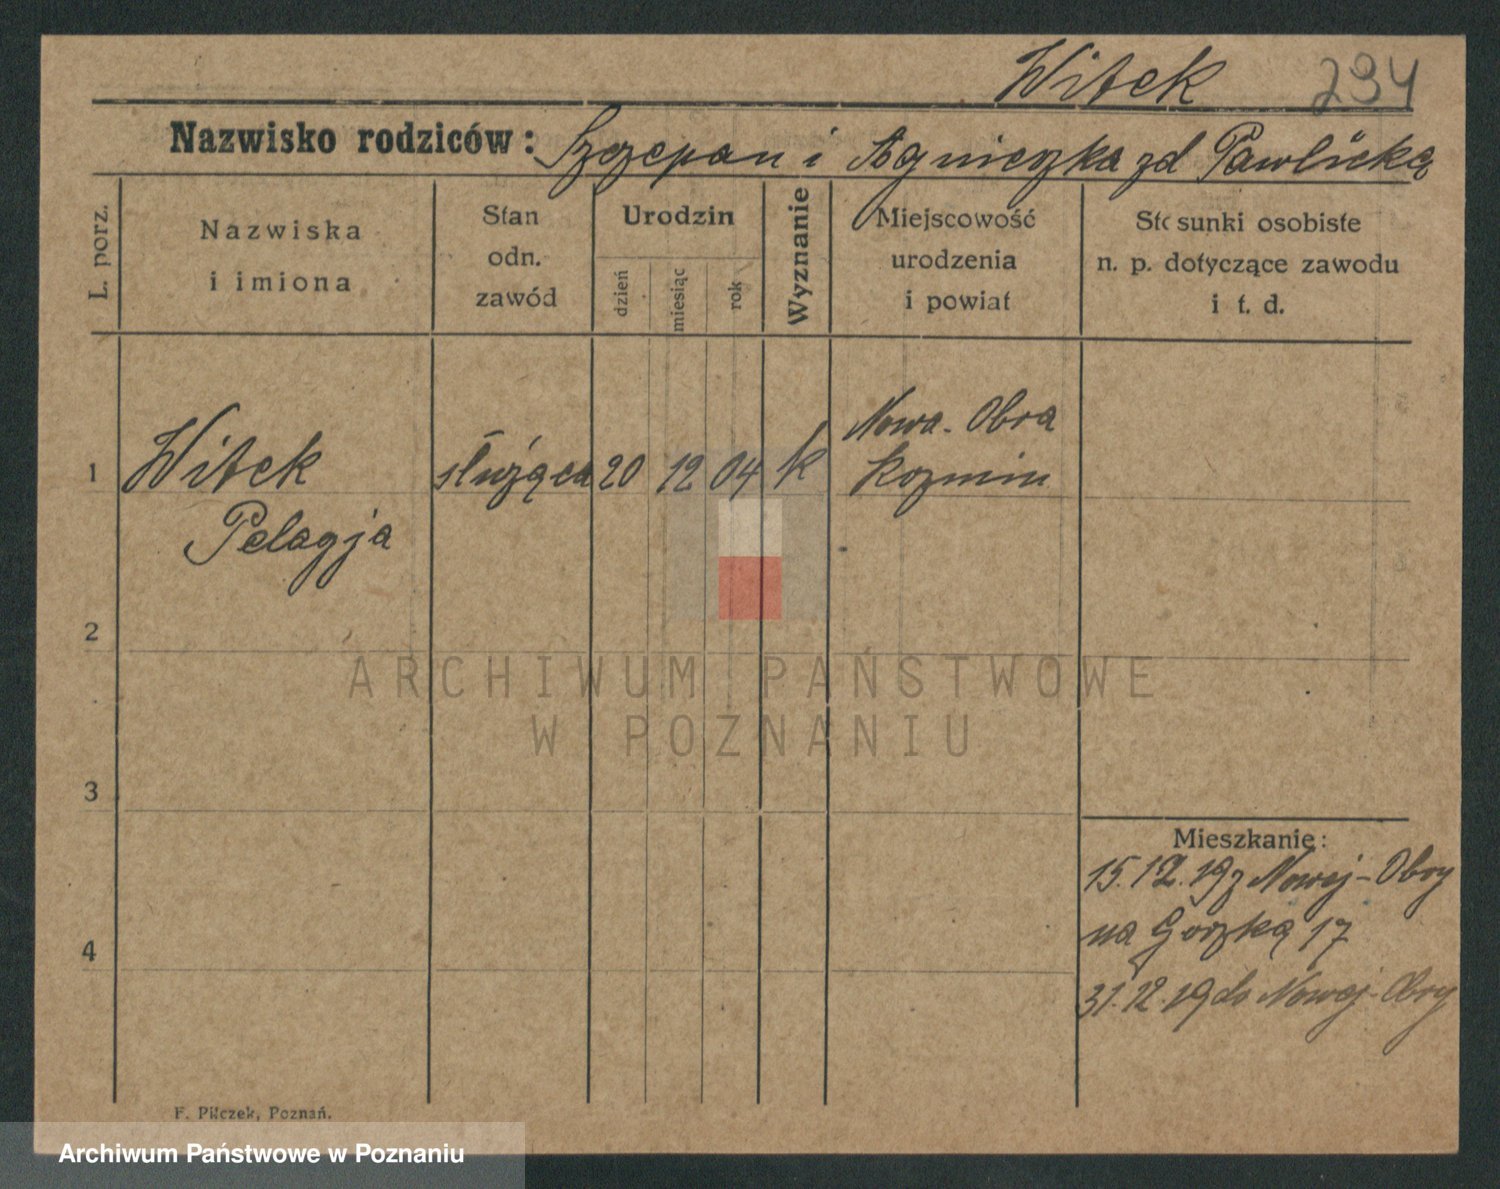 Witek 294
Nazwisko rodziców: Szczepan i Agnieszka zd Pawlicka
L. porz.
Nazwiska
i imiona
Stan
odn.
zawód
Urodzin
dzień
miesiąc
rok
Wyznanie
Miejscowość
urodzenia
i powiat
Stosunki osobiste
n. p. dotyczące zawodu
i t. d.
1 Witek służąca 20 12 04 k Nowa-Obra
Pelagja Kozmin
2
3
4
Mieszkanie:
15.12.19 z Nowej-Obry
na Gorzką 17
31.12.19 do Nowej-Obry
F. Pilczek, Poznań.
ARCHIWUM PAŃSTWOWE
W POZNANIU
Archiwum Państwowe w Poznaniu